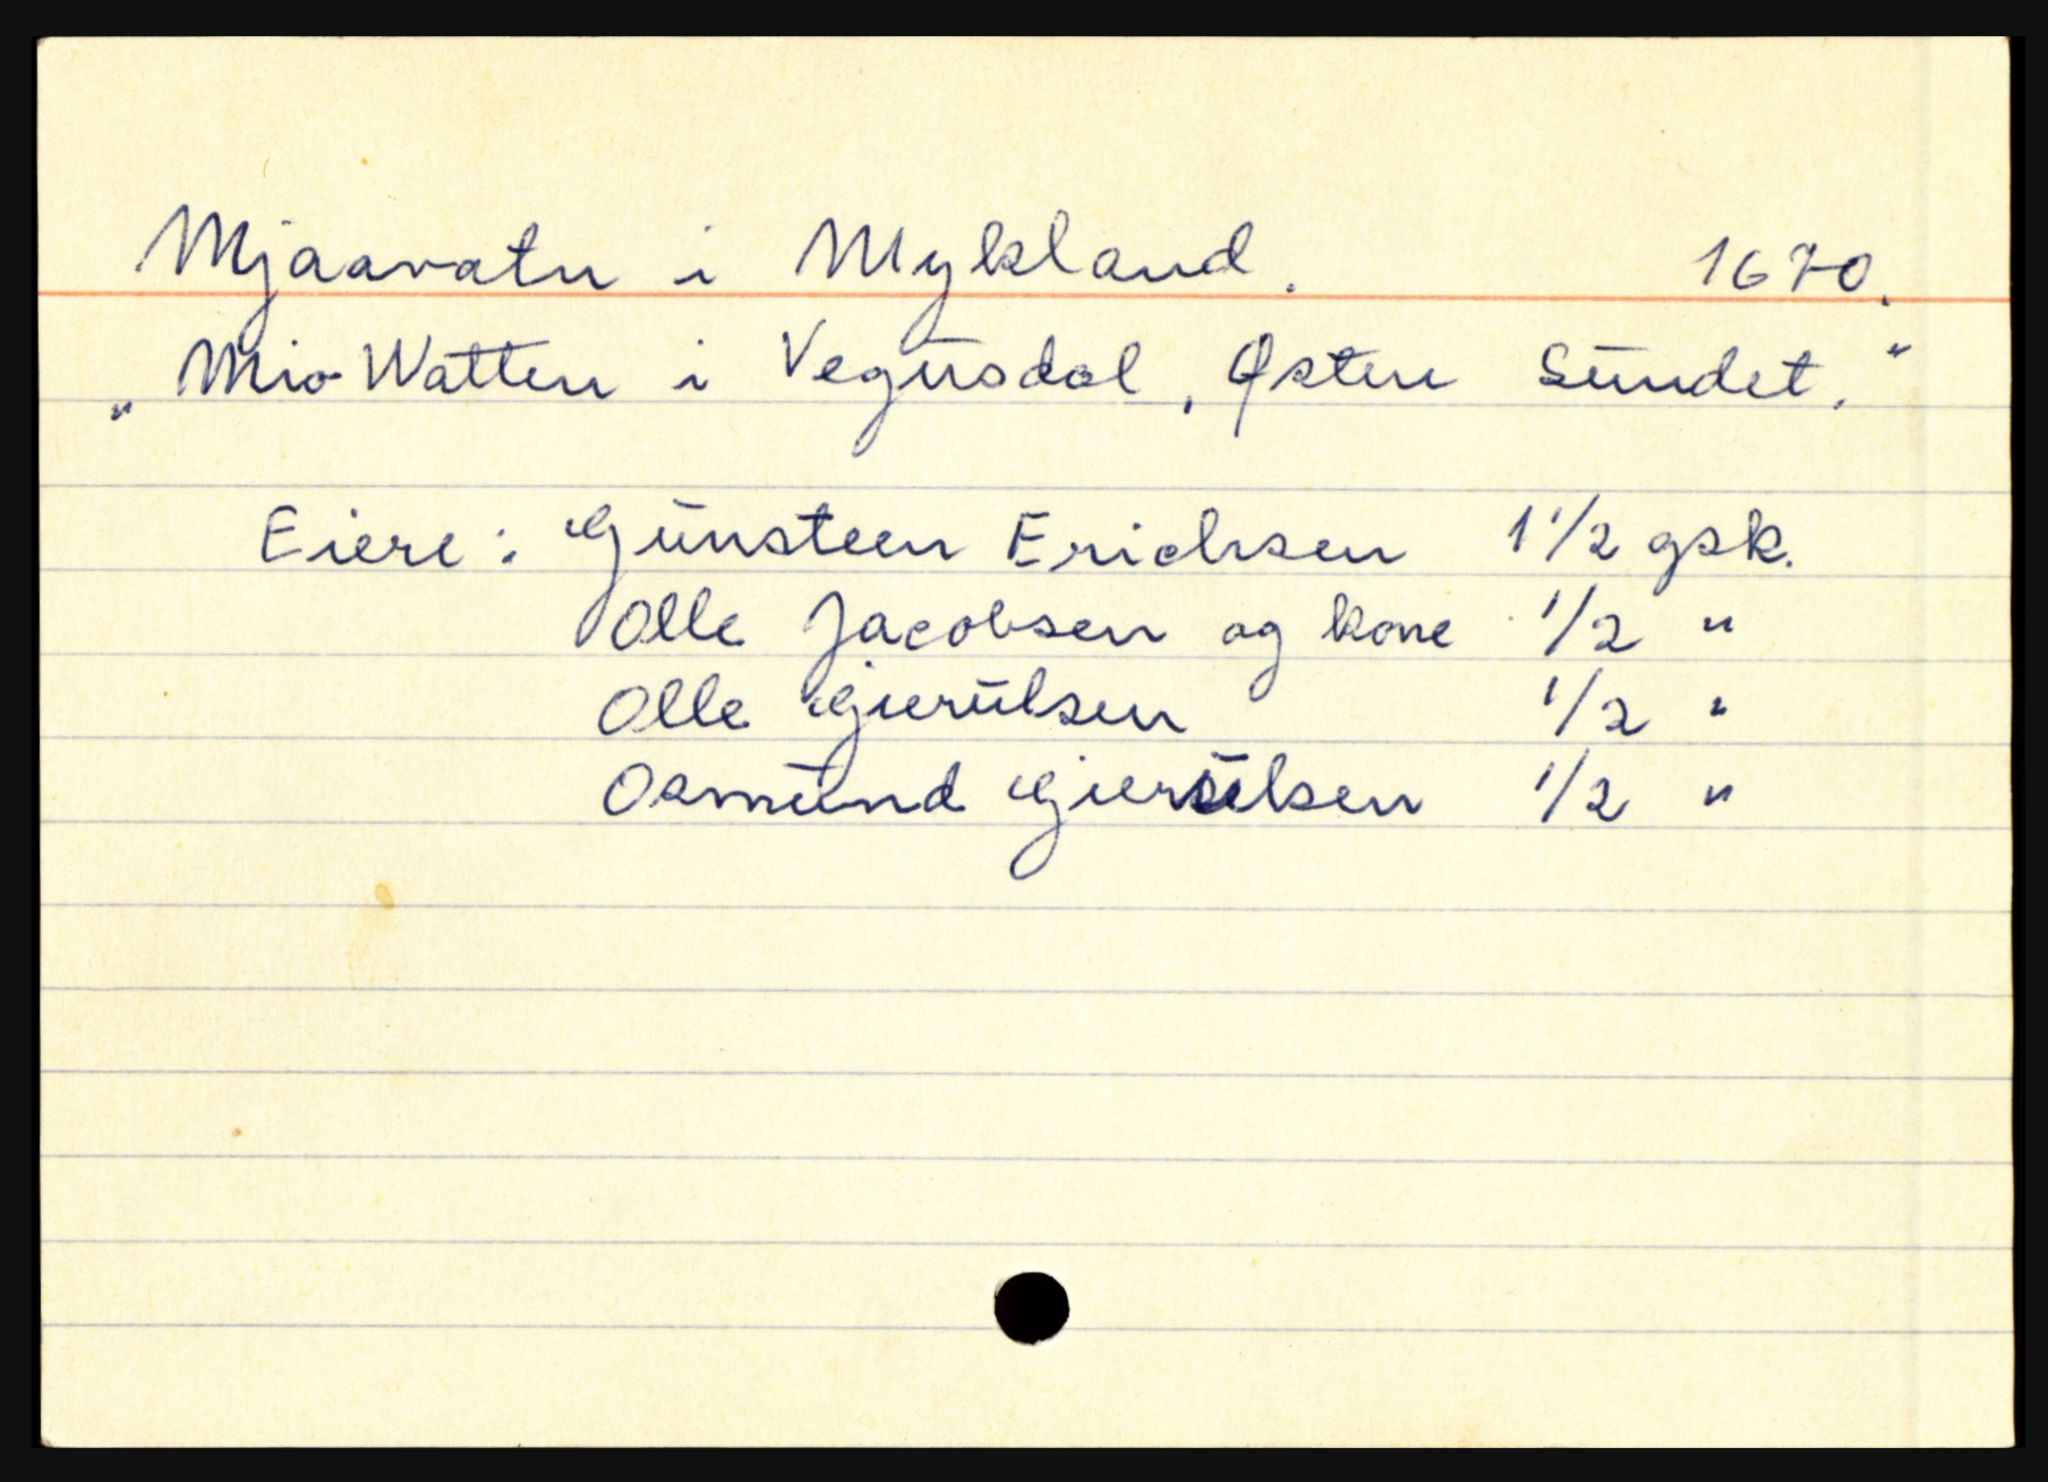 Mjaavatn i Mykland. 1670.
„Mio Watten i Vegusdal, Østen Sundet."
Eiere: Gunsteen Erichsen 1 1/2 gsk.
Olle Jacobsen og kone 1/2 "
Olle Gierulsen 1/2 "
Osmund Gierulsen 1/2 "